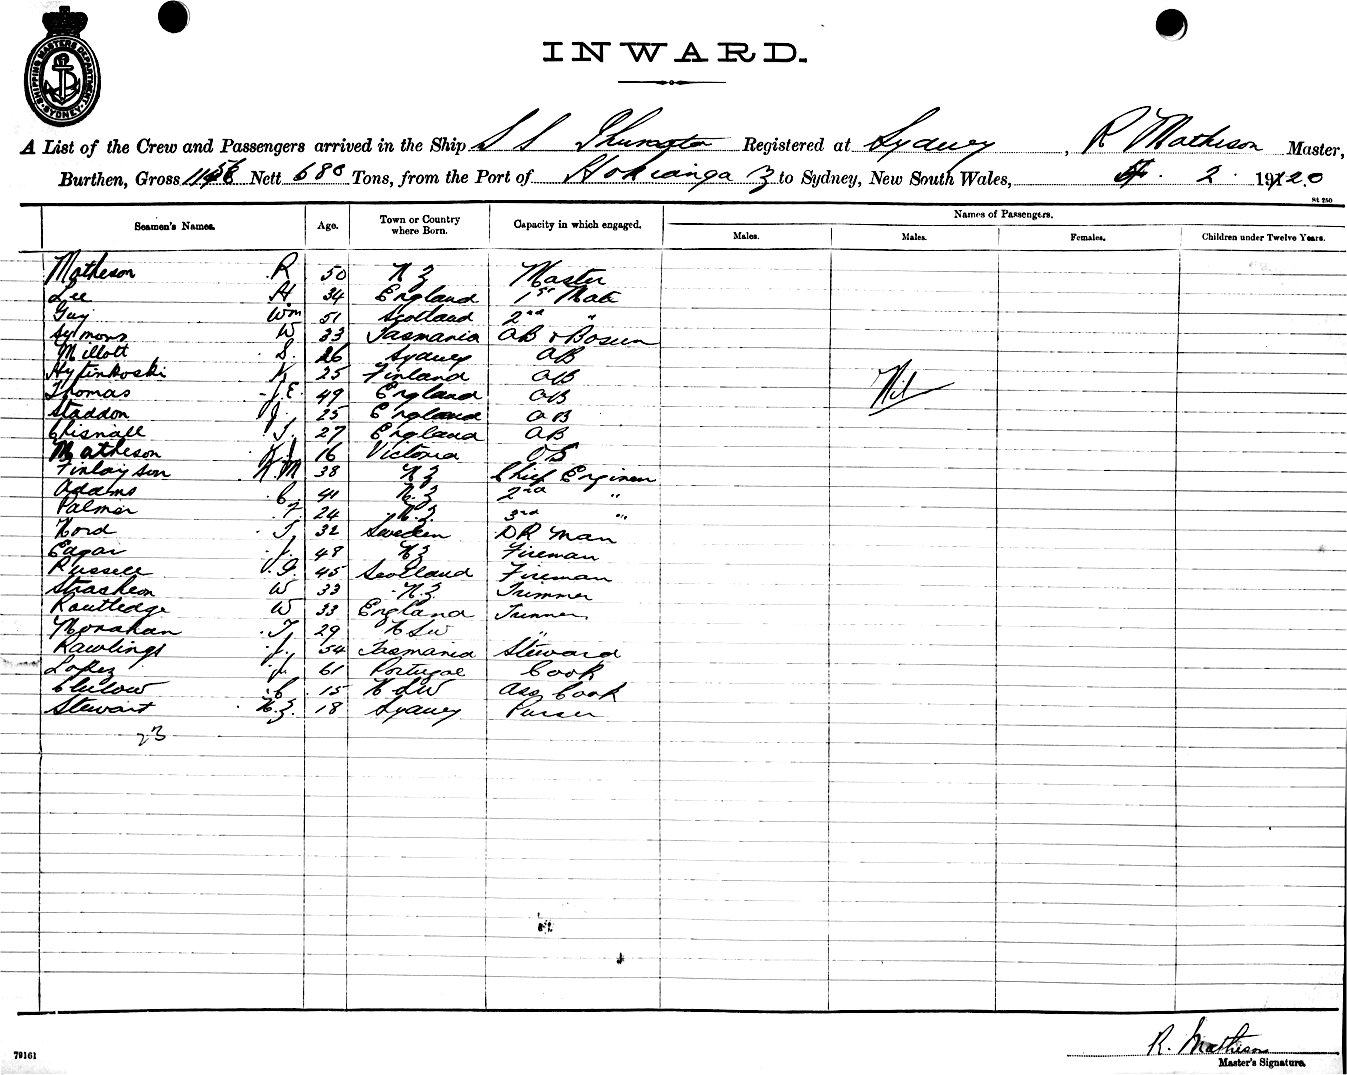 SHIPPING MASTERS DEPARTMENT SYDNEY
INWARD.
A List of the Crew and Passengers arrived in the Ship S S Registered at Sydney, R Matheson Master,
Burthen, Gross Nett 680 Tons, from the Port of Hokianga to Sydney, New South Wales, 2. 1920
St 250
Seamen's Names. Age. Town or Country where Born. Capacity in which engaged. Names of Passengers.
Males. Males. Females. Children under Twelve Years.
Matheson R 50 N Z Master
Lee H. 34 England 1st Mate
Guy Wm 51 Scotland 2nd "
Symons W 33 Tasmania AB & Bosun
Millott S. 26 Sydney AB
Hytinkoski K 25 Finland AB
Thomas J.E. 49 England AB
Staddon 25 England AB
Chisnall T. 27 England AB
Matheson 16 Victoria OS
Finlayson M 38 N Z Chief Engineer
Adams C 41 N.Z 2nd "
Palmer 24 N.Z 3rd "
Nord T 32 Sweden DK Man
Edgar J. 48 N Z Fireman
Russell G 45 Scotland Fireman
Strachan W 33 N.Z Trimmer
Routledge W 33 England Trimmer
Monahan T 29 NSW "
Rawlings J. 54 Tasmania Steward
Lopez J. 61 Portugal Cook
Chilow C 15 NSW Ass Cook
Stewart 18 Sydney Purser
23
Nil
R. Matheson
Master's Signature.
79161